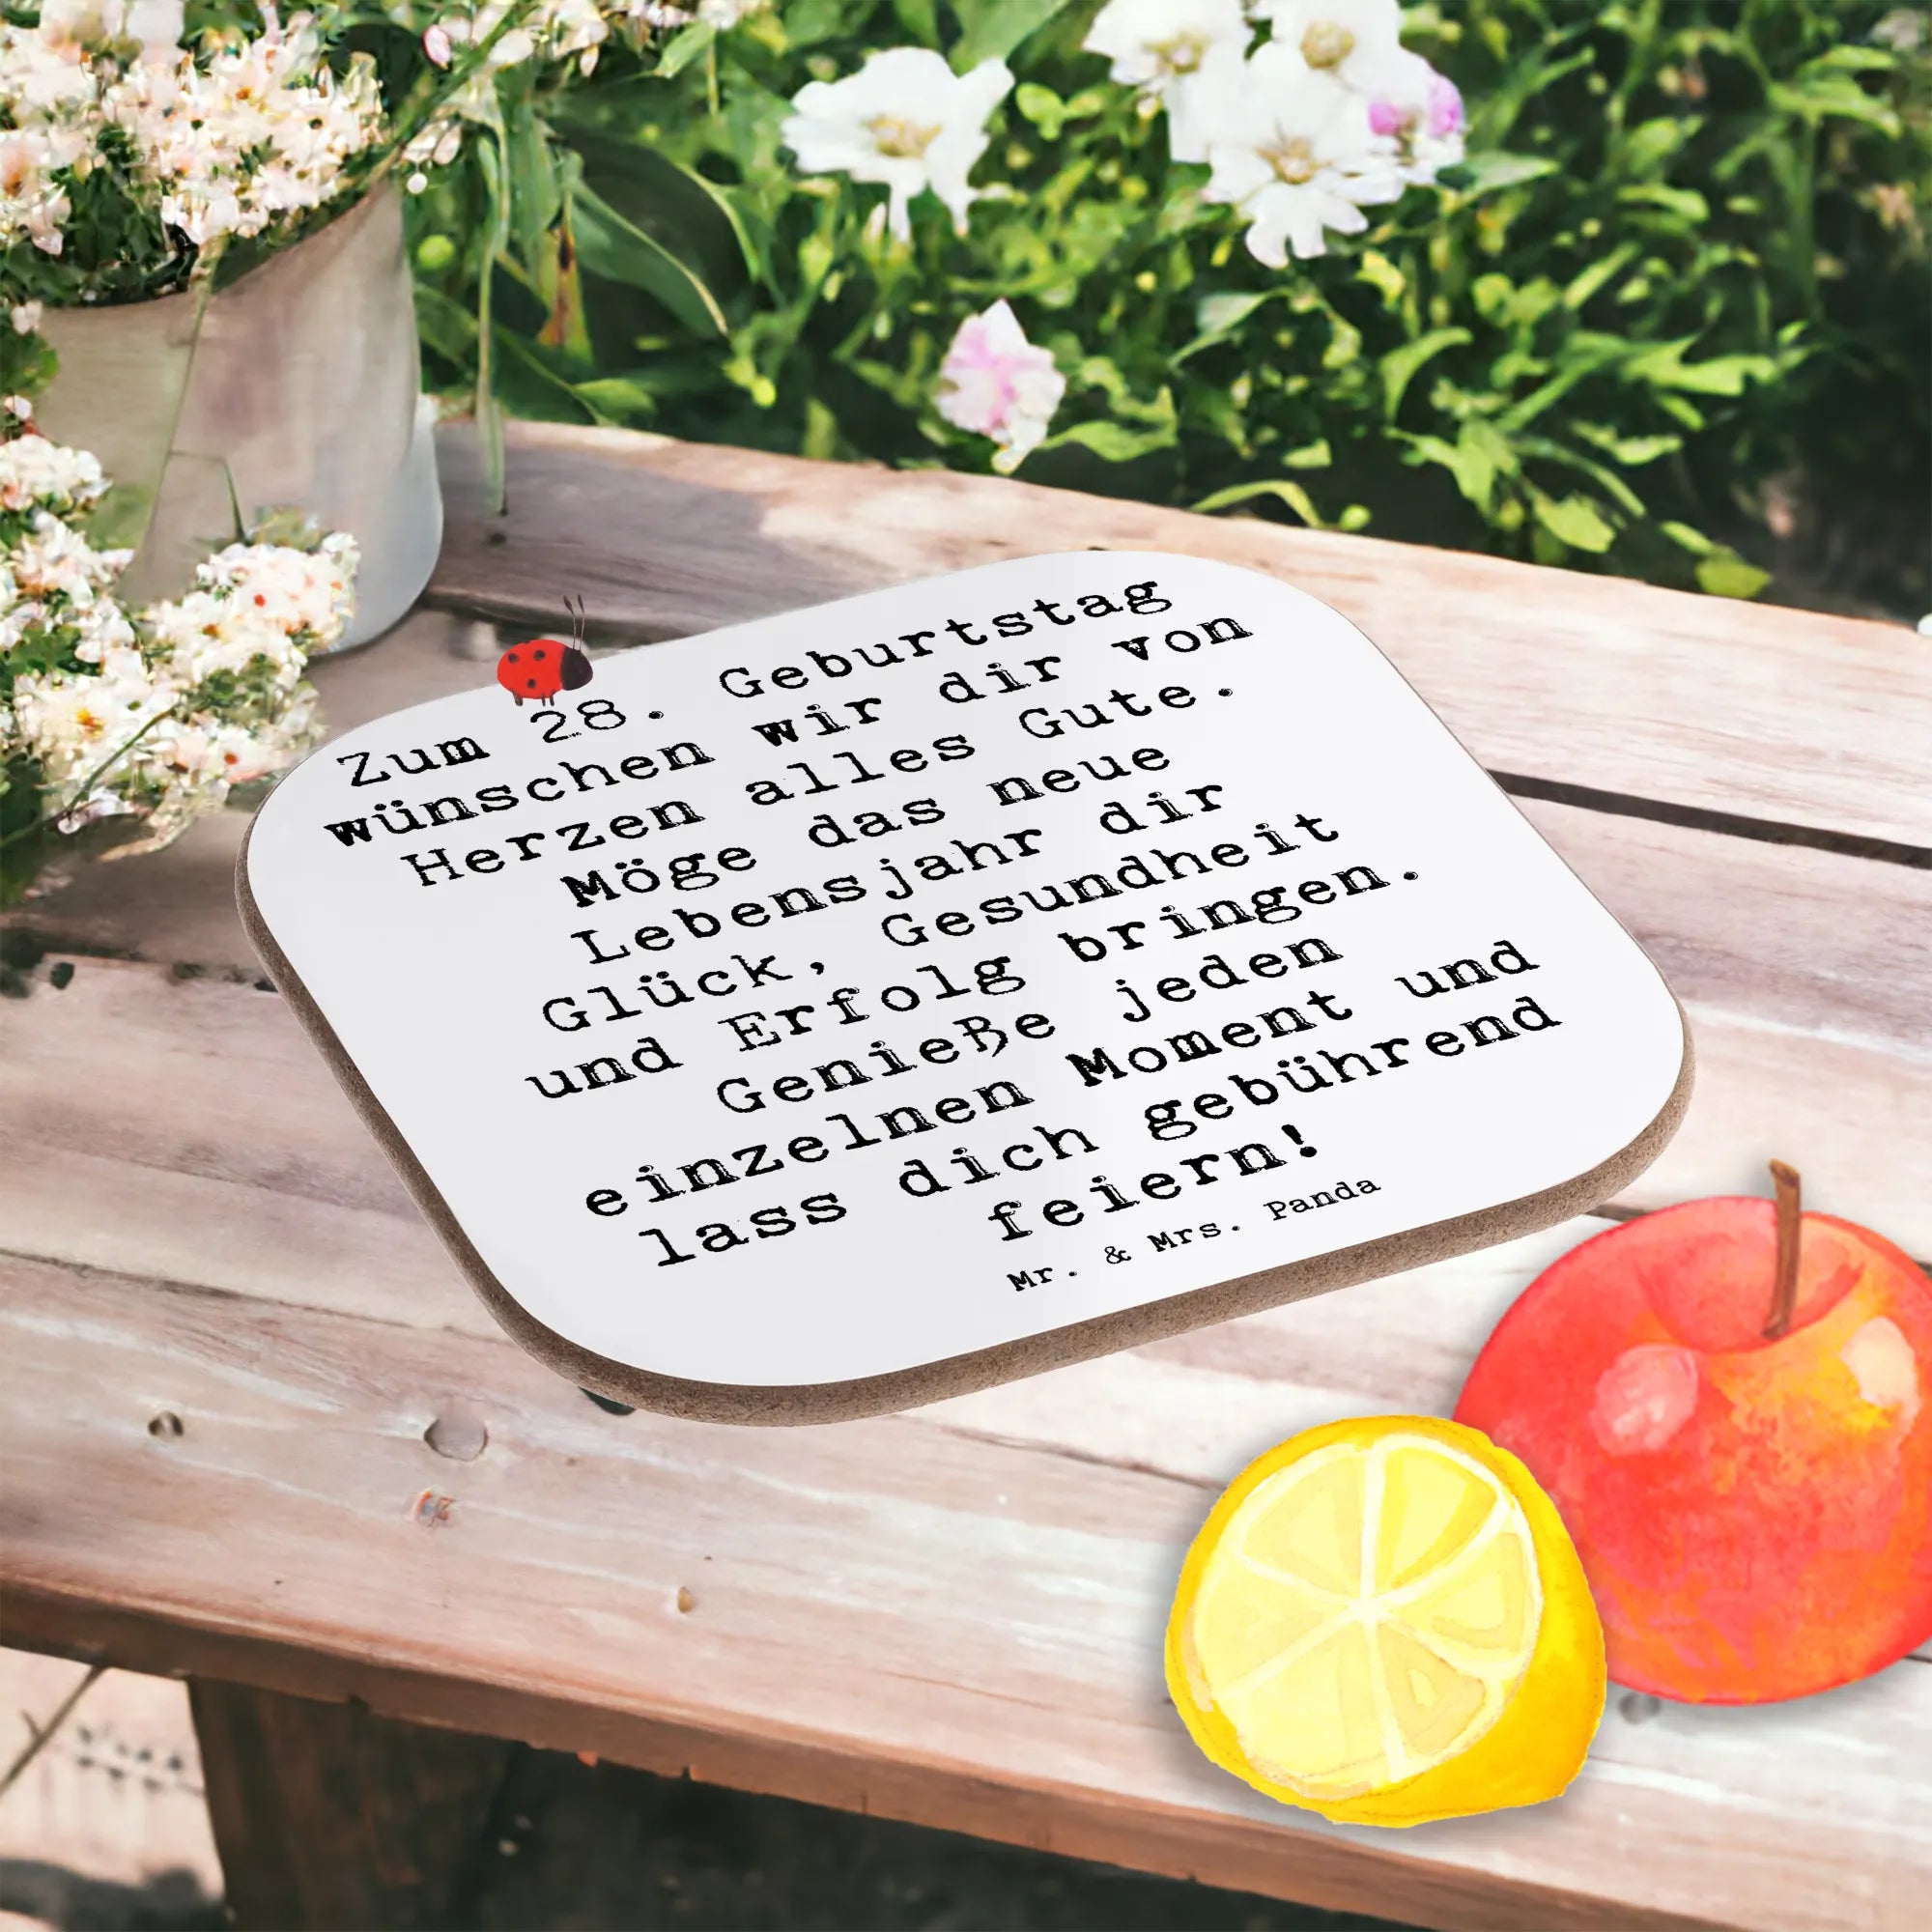 Zum 28. Geburtstag
wünschen wir dir von
Herzen alles Gute.
Möge das neue
Lebensjahr dir
Glück, Gesundheit
und Erfolg bringen.
Genieße jeden
einzelnen Moment und
lass dich gebührend
feiern!
Mr. & Mrs. Panda